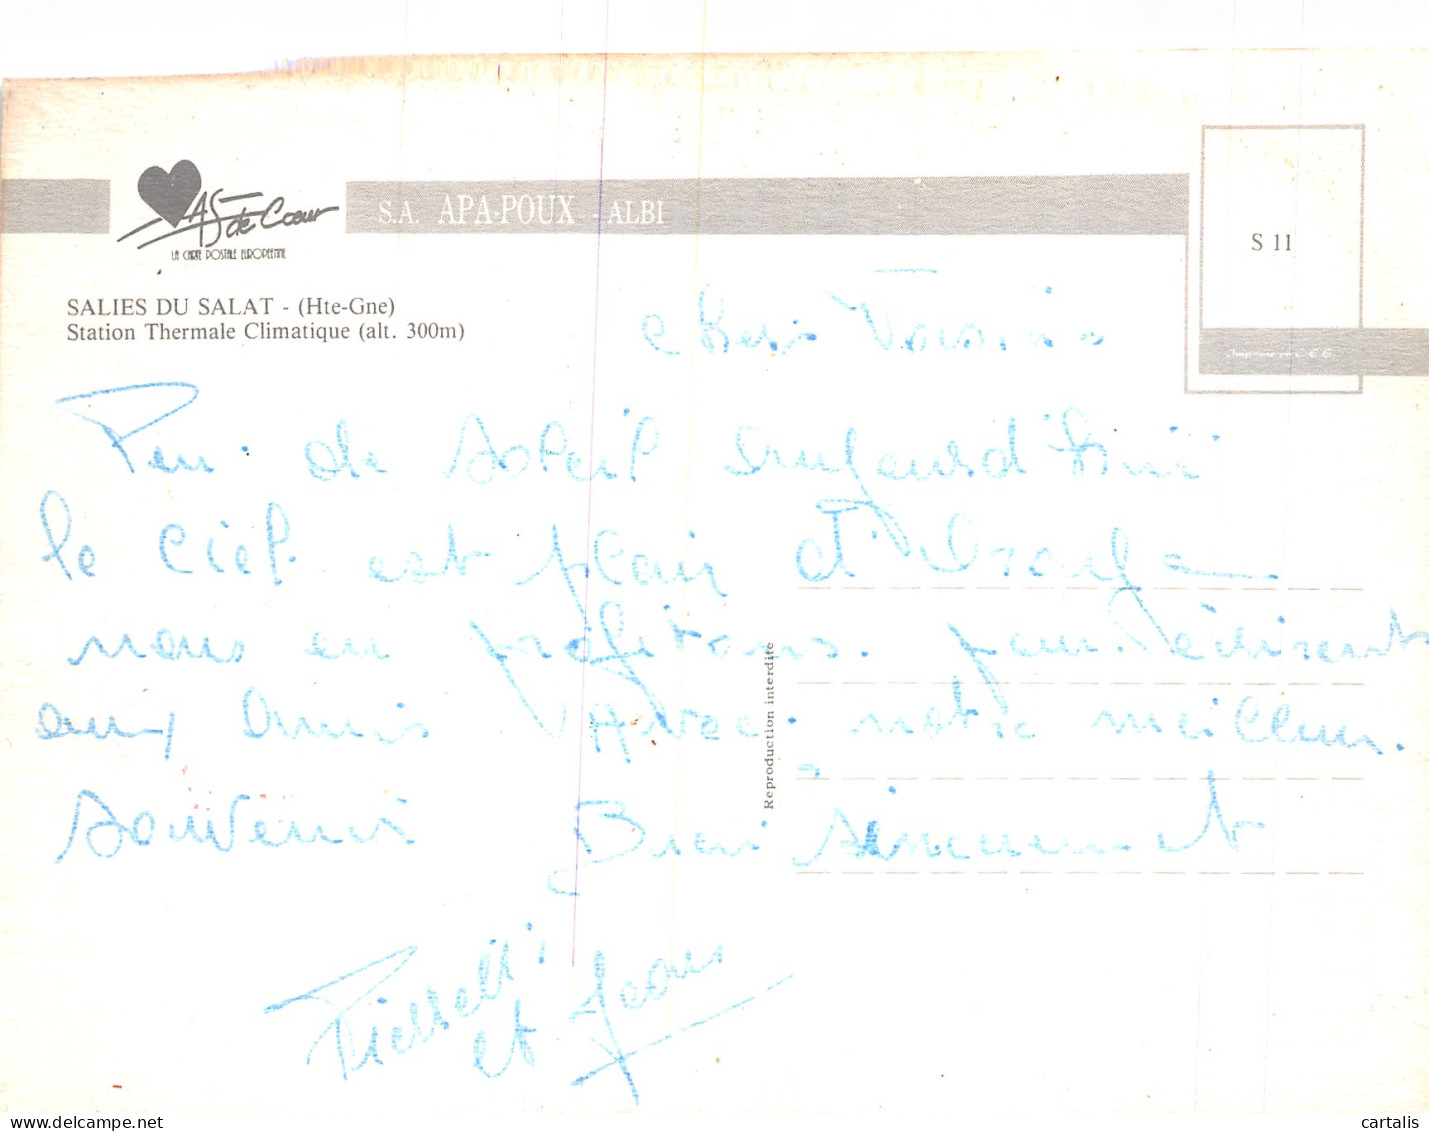 AS de Coeur
LA CARTE POSTALE EUROPÉENNE
S.A. APA-POUX - ALBI
S 11
SALIES DU SALAT - (Hte-Gne)
Station Thermale Climatique (alt. 300m)
Chers Voisins
Peu de soleil aujourd'hui
le ciel est
nous en profitons. pour
aux Amis Avec notre meilleur
souvenir Bien sincerement
et Jean
Reproduction interdite
cartalis
delcampe.net